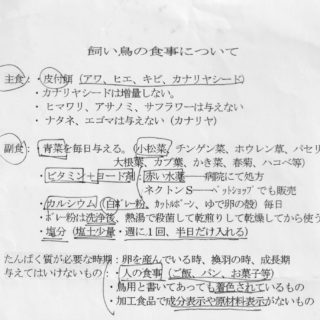 飼い鳥の食事について
主食:・皮付餌(アワ、ヒエ、キビ、カナリヤシード)
・カナリヤシードは増量しない。
・ヒマワリ、アサノミ、サフラワーは与えない
・ナタネ、エゴマは与えない(カナリヤ)
副食:・青菜を毎日与える。小松菜、チンゲン菜、ホウレン草、パセリ
大根葉、カブ葉、かき菜、春菊、ハコベ等)
・ビタミン+ヨード剤:赤い水薬──病院にて処方
ネクトンS──ペットショップでも販売
・カルシウム(白ボレー粉、カットルボーン、ゆで卵の殻)毎日
・ボレー粉は洗浄後、熱湯で殺菌して乾煎りして乾燥してから使う
・塩分(塩土少量・週に1回、半日だけ入れる)
たんぱく質が必要な時期:卵を産んでいる時、換羽の時、成長期
与えてはいけないもの:・人の食事(ご飯、パン、お菓子等)
・鳥用と書いてあっても着色されているもの
・加工食品で成分表示や原材料表示がないもの